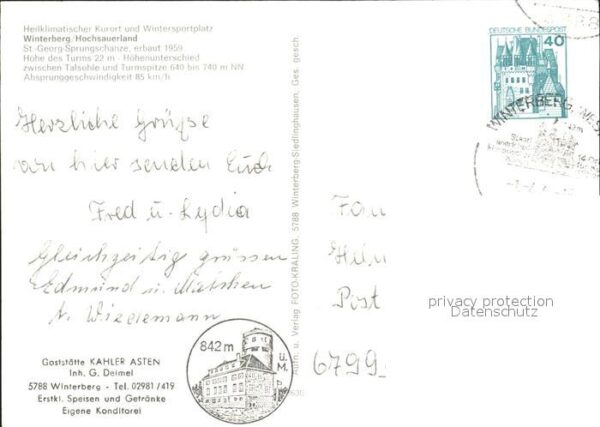 Heilklimatischer Kurort und Wintersportplatz
Winterberg/Hochsauerland
St.-Georg-Sprungschanze, erbaut 1959
Höhe des Turms 22 m - Höhenunterschied
zwischen Talsohle und Turmspitze 640 bis 740 m NN
Absprunggeschwindigkeit 85 km/h
Herzliche Grüße
von hier senden Euch
Fred u. Lydia
Gleichzeitig grüssen
Edmund u.
Wiedemann
Gaststätte KAHLER ASTEN
Inh. G. Deimel
5788 Winterberg - Tel. 02981/419
Erstkl. Speisen und Getränke
Eigene Konditorei
842 m
ü.M.
Aufn. u. Verlag FOTO-KRALING, 5788 Winterberg-Siedlinghausen, Ges. gesch.
DEUTSCHE BUNDESPOST
40
WINTERBERG, WEST
Post
6799
privacy protection
Datenschutz